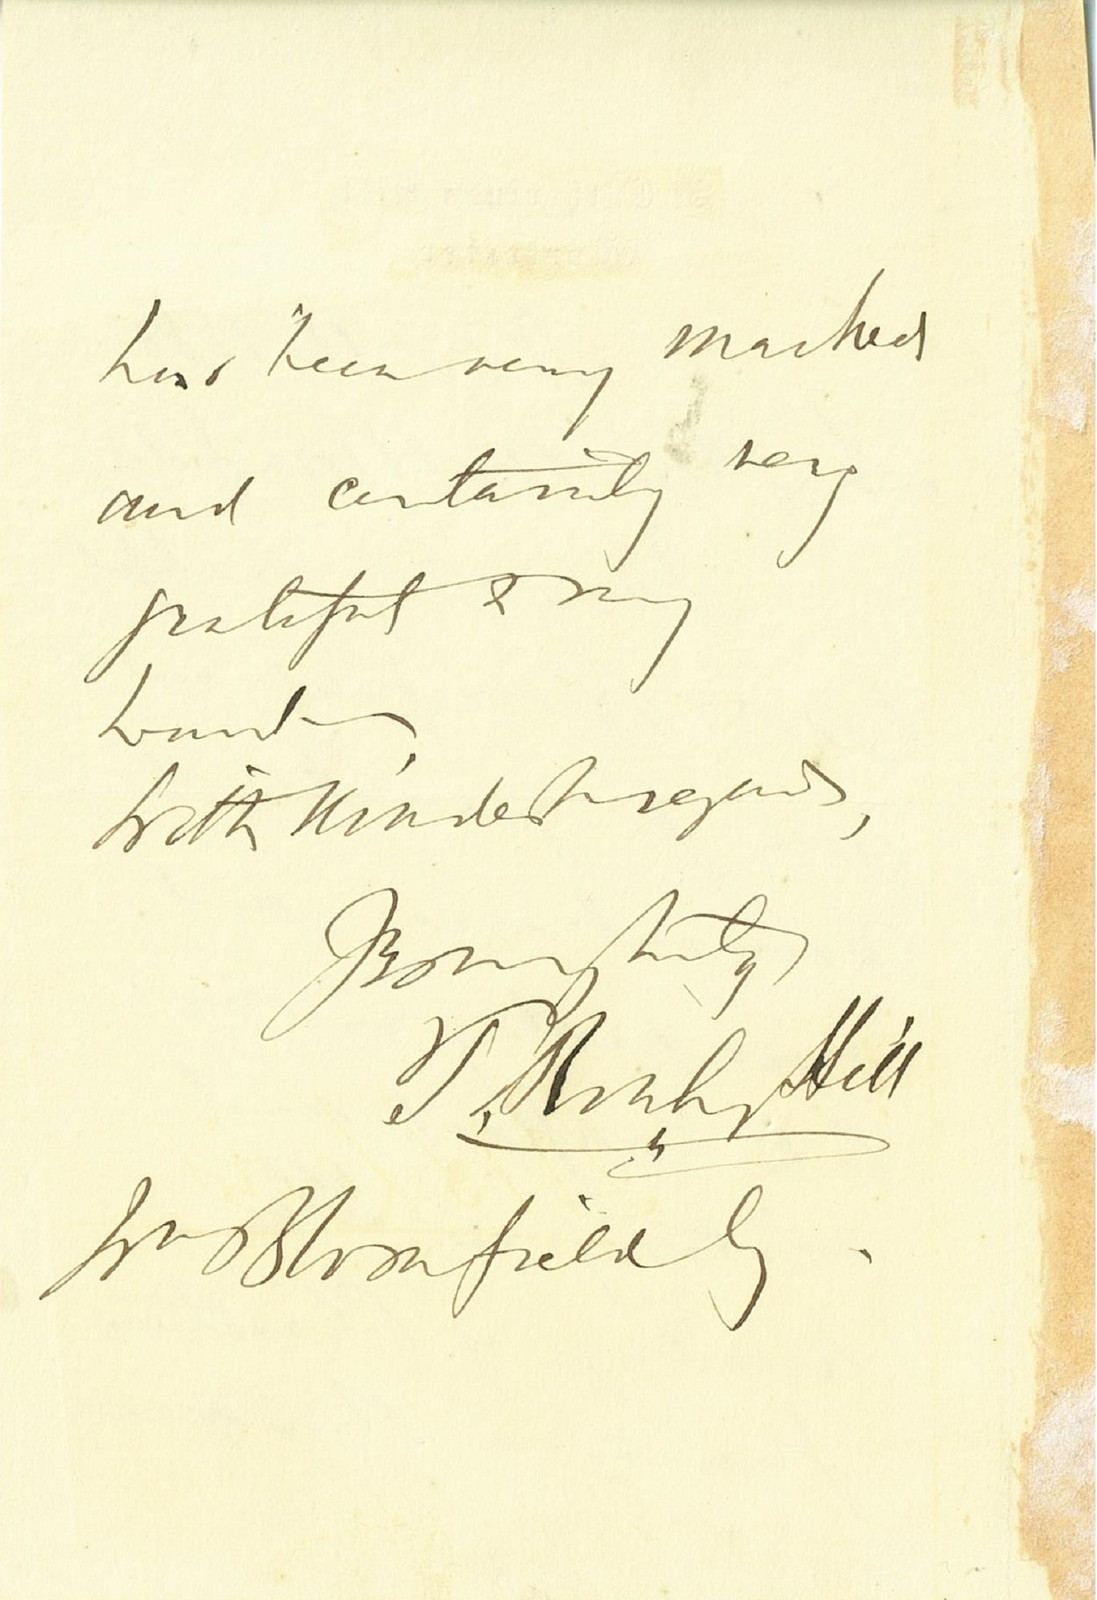 has been very marked
and certainly very
grateful
With kindest regards,
Yours truly
T. Rowley Hill
Wm Bloomfield Esq.